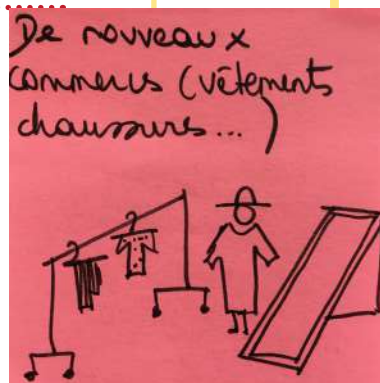 De nouveaux
commerces (vêtements
chaussures...)